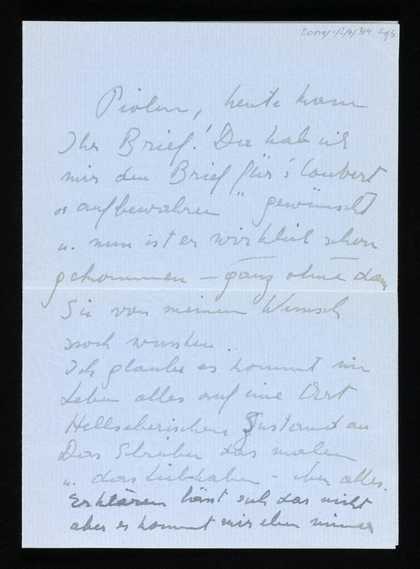 heute kam
Ihr Brief! Da hab ich
mir den Brief für's
aufbewahren" gewünscht
u. nun ist er wirklich schon
gekommen — ganz ohne dass
Sie von meinem Wunsch
noch wussten.
Ich glaube es kommt im
Leben alles auf eine Art
Hellseherischen Zustand an
Das Streiben das malen
u. das Liebhaben - eben alles.
Erklären lässt sich das nicht
aber es kommt mir eben immer